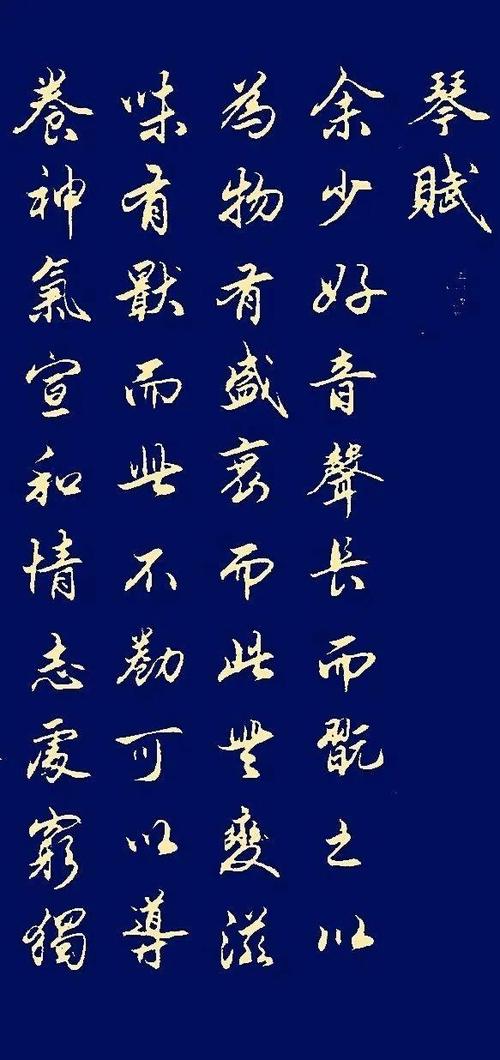 琴賦
余少好音聲長而翫之以
為物有盛衰而此無變滋
味有猒而此不勌可以導
養神氣宣和情志處窮獨